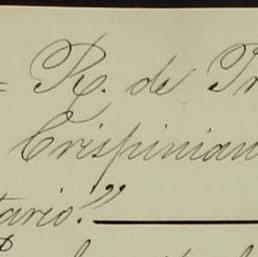 = R. de Pr
Crispinian
tario."